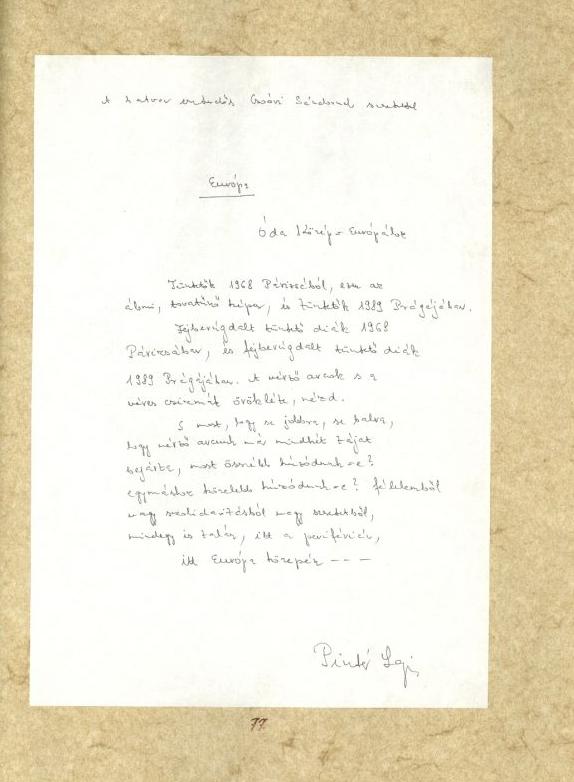 A hatvan esztendős Csoóri Sándornak szeretettel
Európa
Óda Közép-Európához
Tüntetők 1968 Párizsából, ezen az
álmi, tovatűnő képen, és tüntetők 1989 Prágájában.
Fejberúgdalt tüntető diák 1968
Párizsában, és fejberúgdalt tüntető diák
1989 Prágájában. A vérző arcok s a
véres csizmák öröklété, nézd.
S most, hogy se jobbra, se balra,
hogy vérző arcunk már mindkét táját
bejárta, most összébb húzódunk-e?
egymáshoz közelebb húzódunk-e? félelemből
vagy szolidaritásból vagy szeretetből,
mindegy is talán, itt a periférián,
itt Európa közepén – – –
Pintér Lajos
77